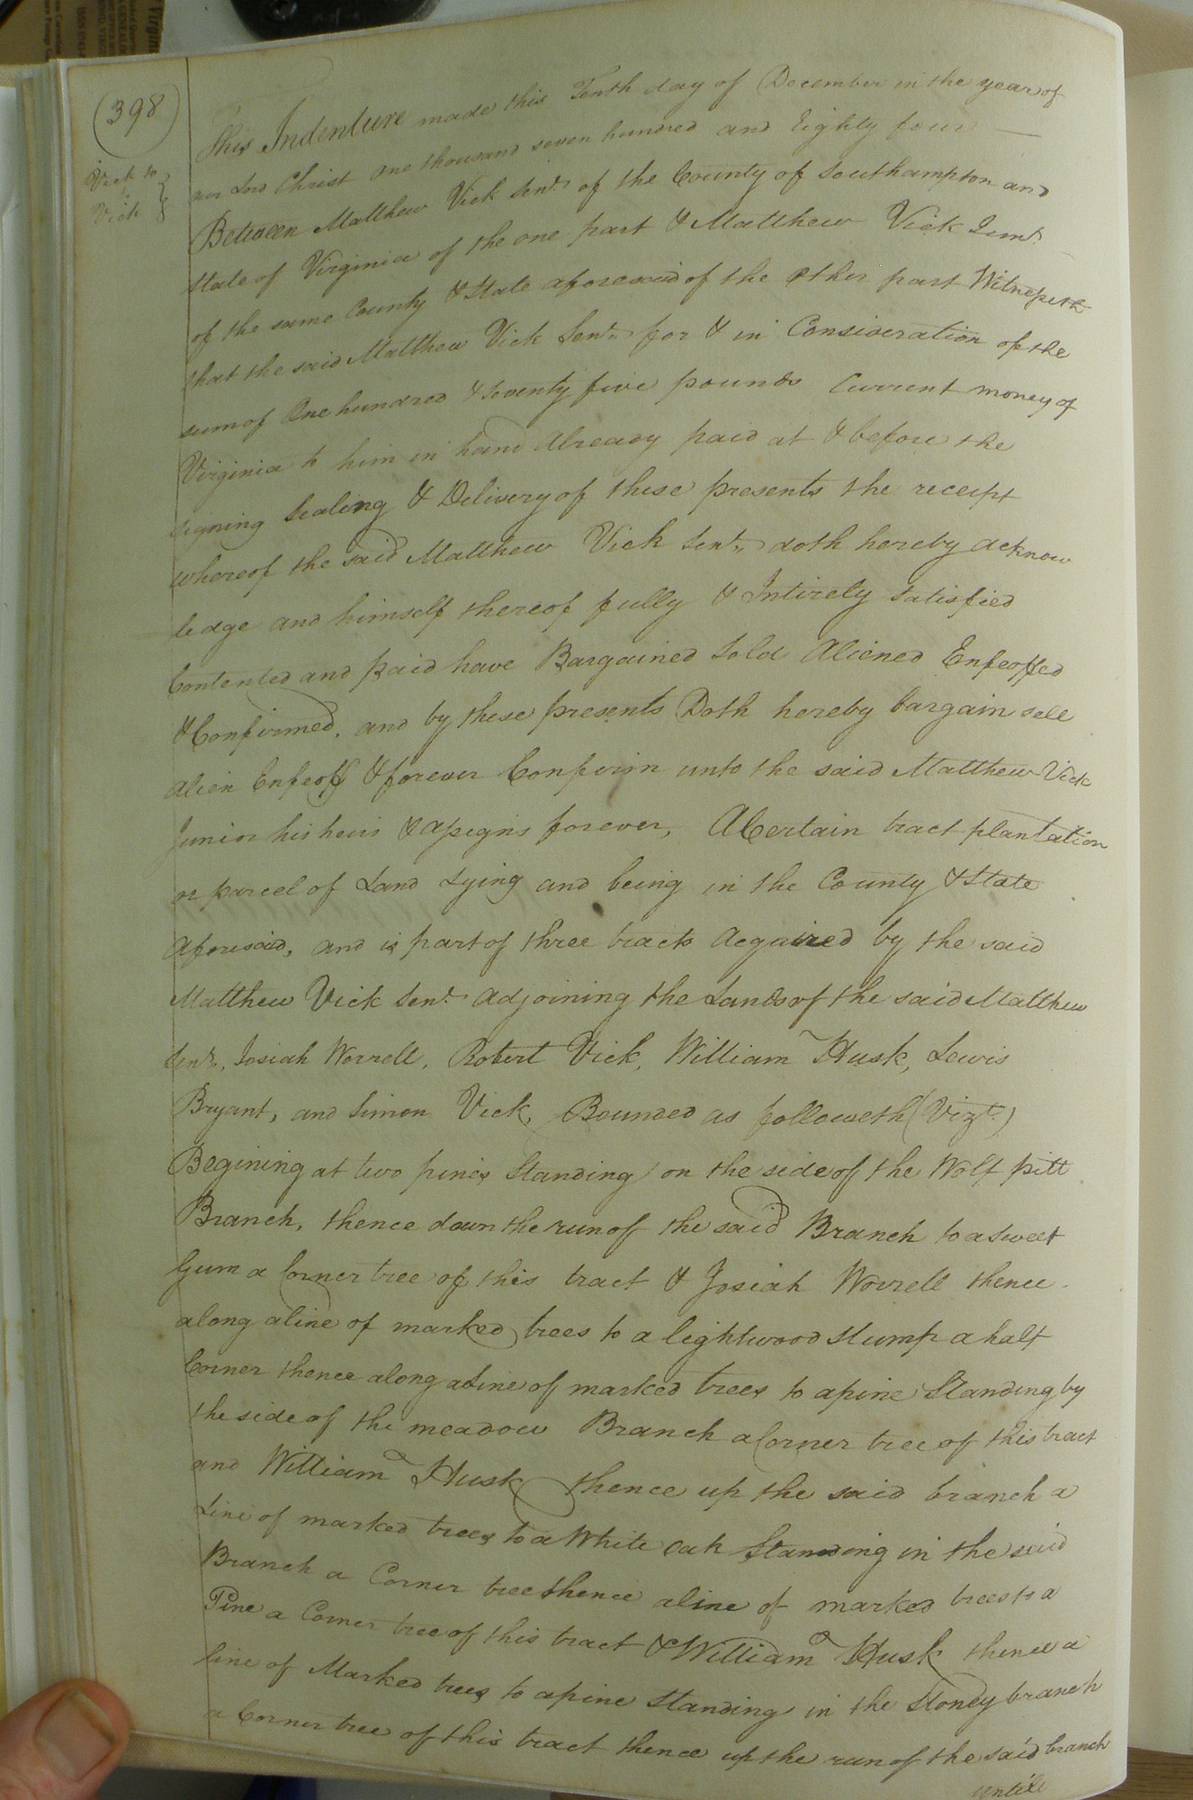 (398)
Vick to
Vick
This Indenture made this Tenth day of December in the year of
our Lord Christ one thousand seven hundred and Eighty four
Between Matthew Vick Senr. of the County of Southampton and
State of Virginia of the one part & Matthew Vick Junr.
of the same County & State aforesaid of the other part Witnesseth
that the said Matthew Vick Senr. for & in Consideration of the
sum of One hundred & seventy five pounds Current money of
Virginia to him in hand Already paid at & before the
signing Sealing & Delivery of these presents the receipt
whereof the said Matthew Vick Senr. doth hereby acknow
ledge and himself thereof fully & Intirely satisfied
Contented and paid have Bargained Sold Aliened Enfeoffed
& Confirmed, and by these presents Doth hereby bargain sell
Alien Enfeoff & forever Confirm unto the said Matthew Vick
Junior his heirs & assigns forever, A Certain tract plantation
or parcel of Land Lying and being in the County & State
Aforesaid, and is part of three tracts Acquired by the said
Matthew Vick Senr. Adjoining the Lands of the said Matthew
Senr., Josiah Worrell, Robert Vick, William Husk, Lewis
Bryant, and Simon Vick, Bounded as followeth (Vizt.)
Begining at two pines Standing on the side of the Wolf pitt
Branch, thence down the run of the said Branch to a sweet
Gum a Corner tree of this tract & Josiah Worrell thence
along a line of marked trees to a lightwood Stump a half
Corner thence along a Line of marked trees to a pine Standing by
the side of the meadow Branch a Corner tree of this tract
and William Husk thence up the said branch a
Line of marked trees to a White oak Standing in the said
Branch a Corner tree thence a line of marked trees to a
Pine a Corner tree of this tract & William Husk thence a
line of Marked trees to a pine Standing in the Stoney branch
a Corner tree of this tract thence up the run of the said branch
untill